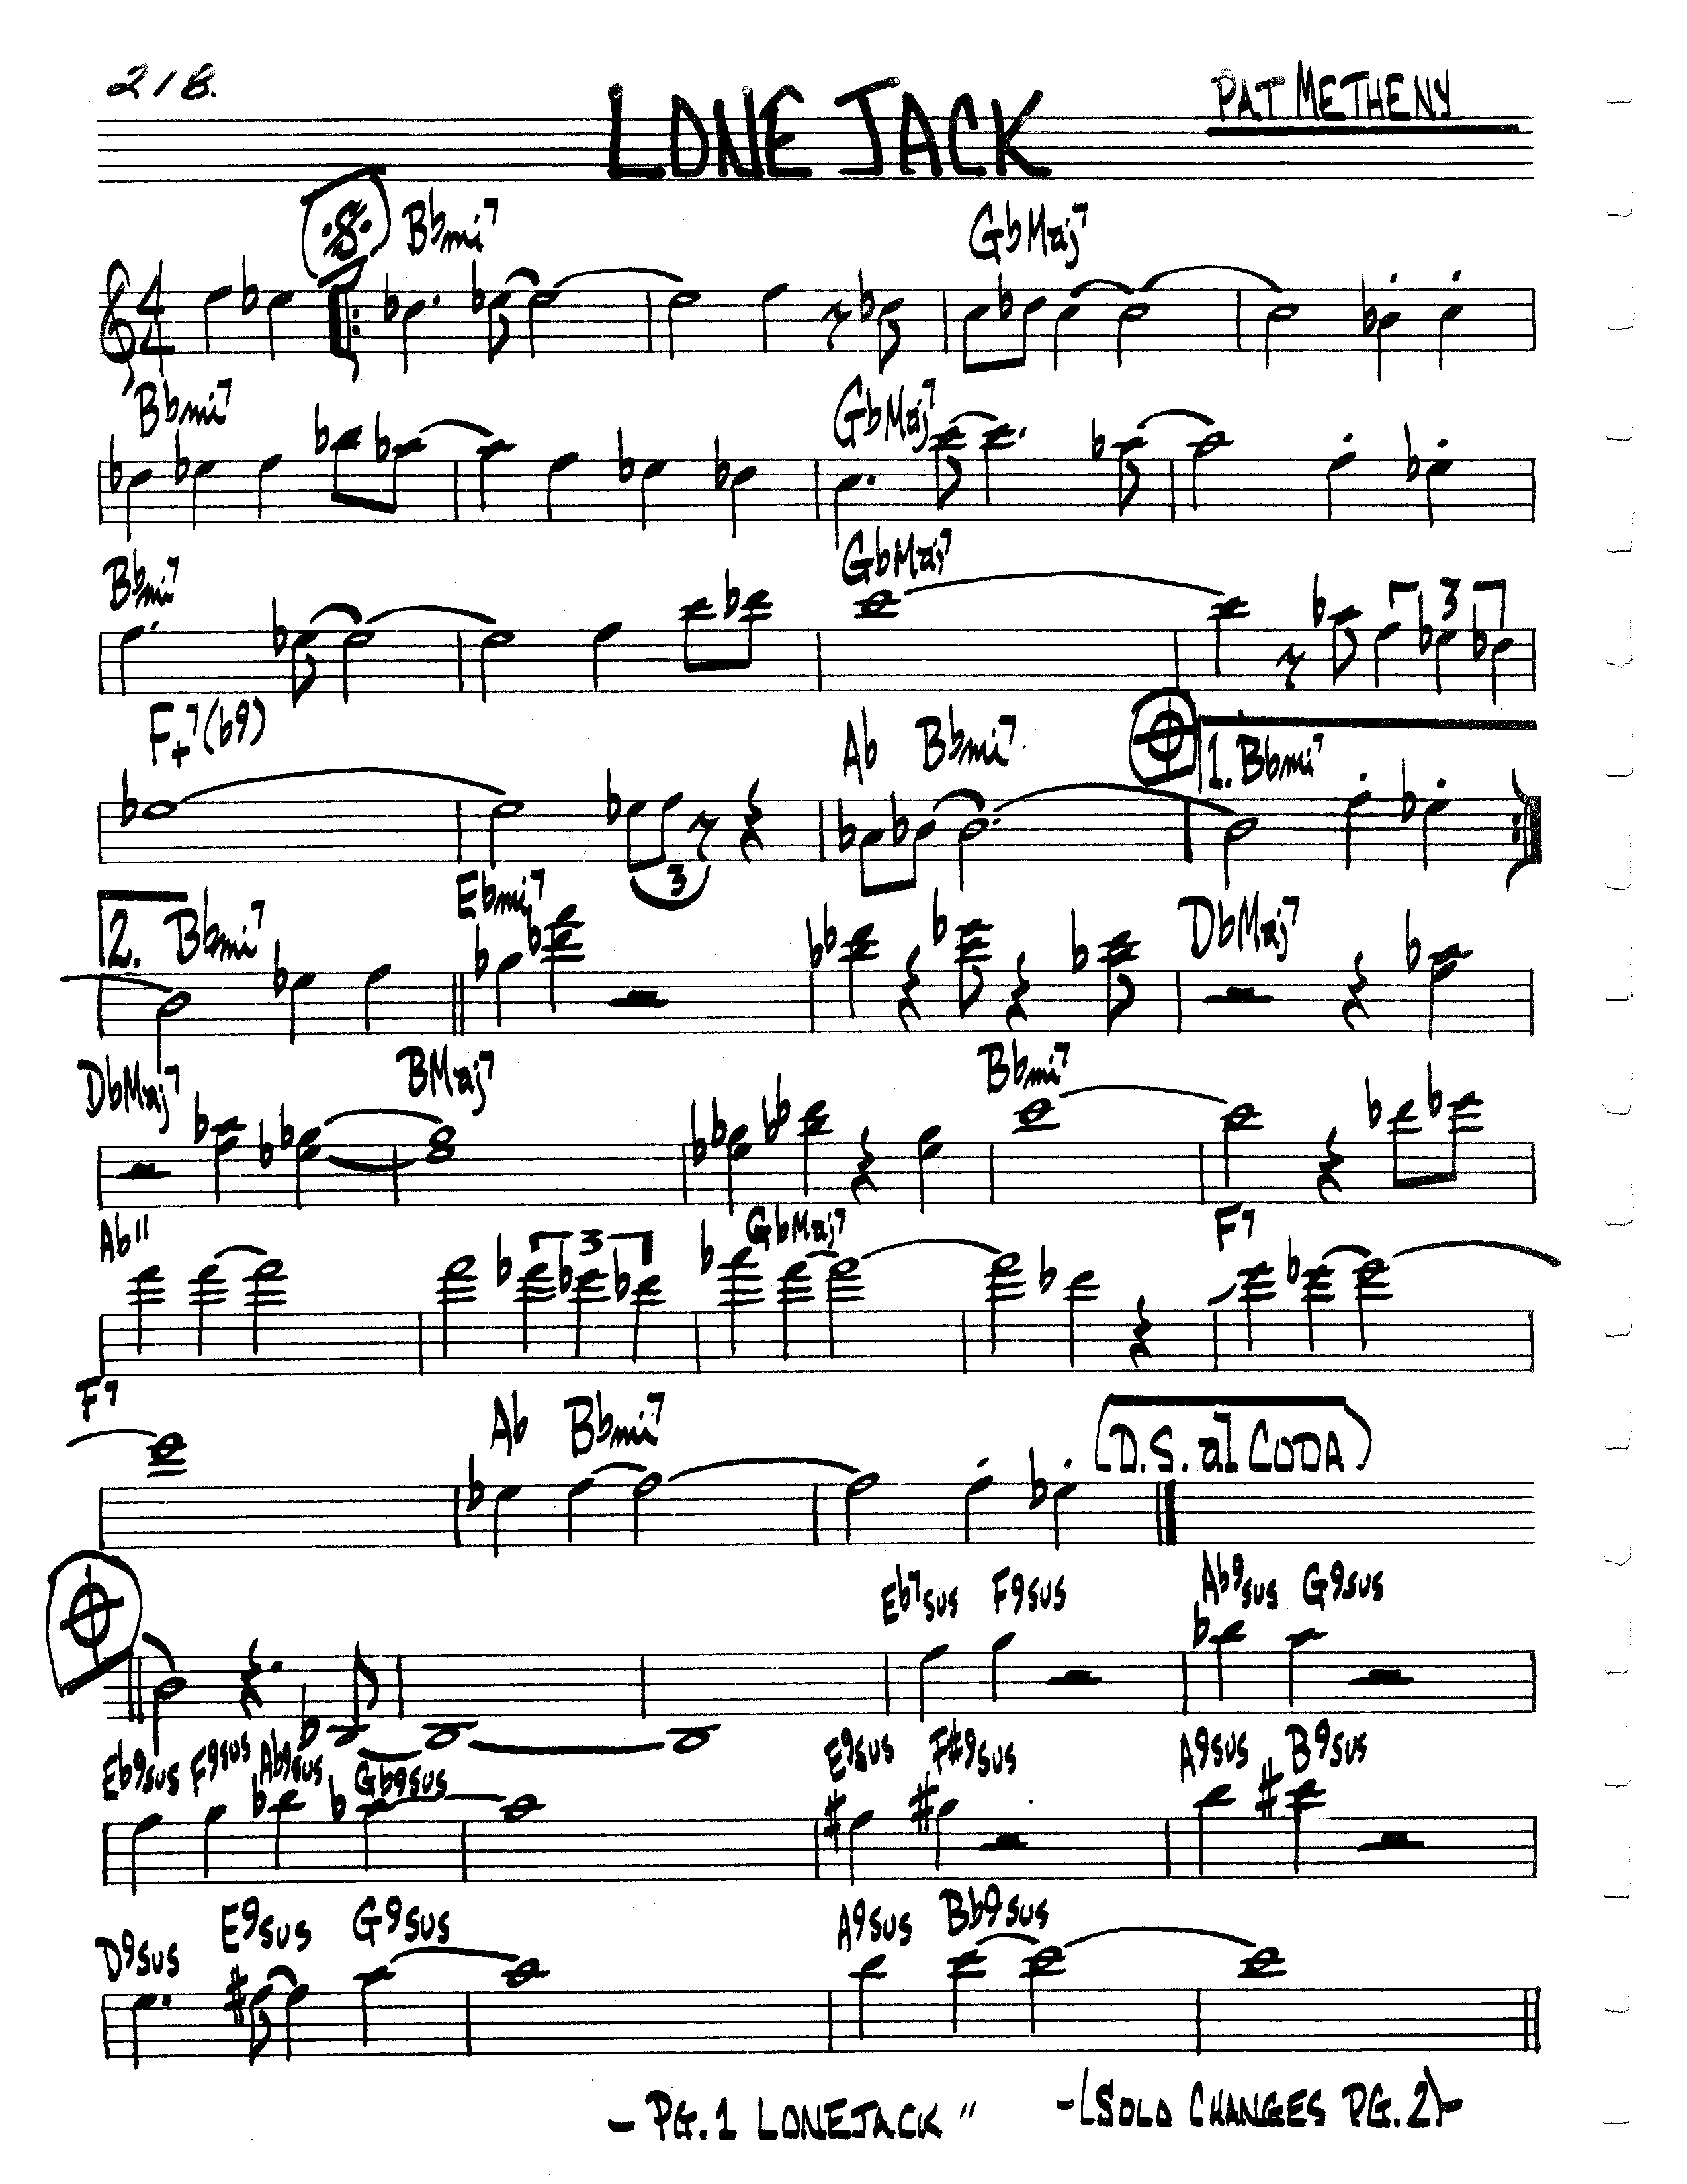 218.
LONE JACK
PAT METHENY
4/4
Bbmi7 GbMaj7
Bbmi7 GbMaj7
Bbmi7 GbMaj7
3
F+7(b9) Ab Bbmi7 1. Bbmi7
3
2. Bbmi7 Ebmi7 DbMaj7
DbMaj7 BMaj7 Bbmi7
Ab11 3 GbMaj7 F7
F7 Ab Bbmi7 (D.S. al CODA)
Eb7sus F9sus Ab9sus G9sus
Eb9sus F9sus Ab9sus Gb9sus E9sus F#9sus A9sus B9sus
D9sus E9sus G9sus A9sus Bb9sus
- PG. 1 LONEJACK " -(SOLO CHANGES PG. 2)-